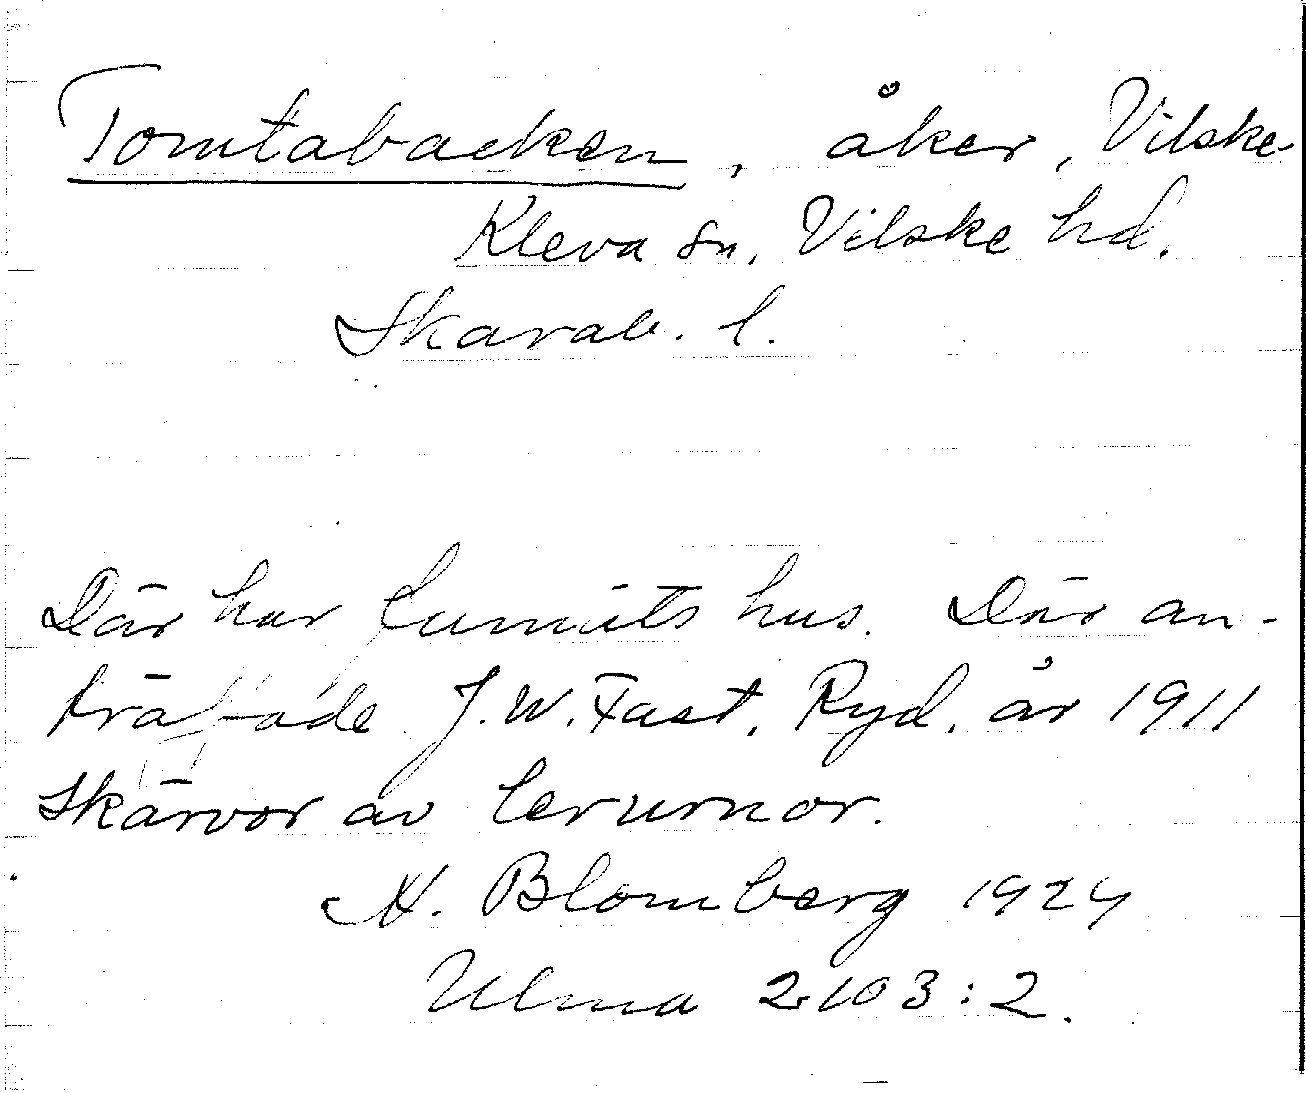 Tomtabacken, åker, Vilske-
Kleva sn, Vilske hd.
Skarab. l.
Där har funnits hus. Där an-
träffade J.W. Fast, Ryd, år 1911
skärvor av lerurnor.
A. Blomberg 1924
Ulma 2103:2.